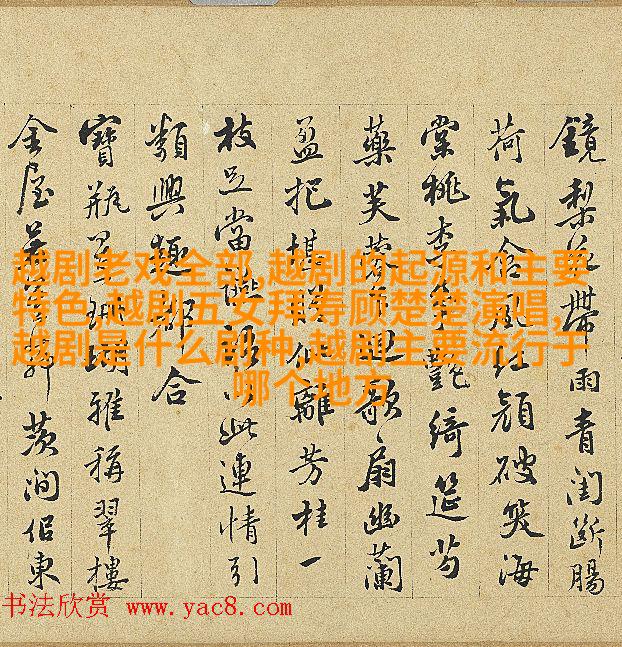 鏡梨花帶雨青閨斷腸
荷氣含風紅顏破笑海
棠桃李艷綺筵芍
藥芙蓉歌扇幽蘭
盈把堪仙離芳桂一
枝足當此連情引
類興趣都合
寶瓶雅稱翠樓
金屋茨澗侶東
越剧老戏全部,越剧的起源和主要
特色,越剧五女拜寿顾楚楚演唱,
越剧是什么剧种,越剧主要流行于
哪个地方
书法欣赏 www.yac8.com